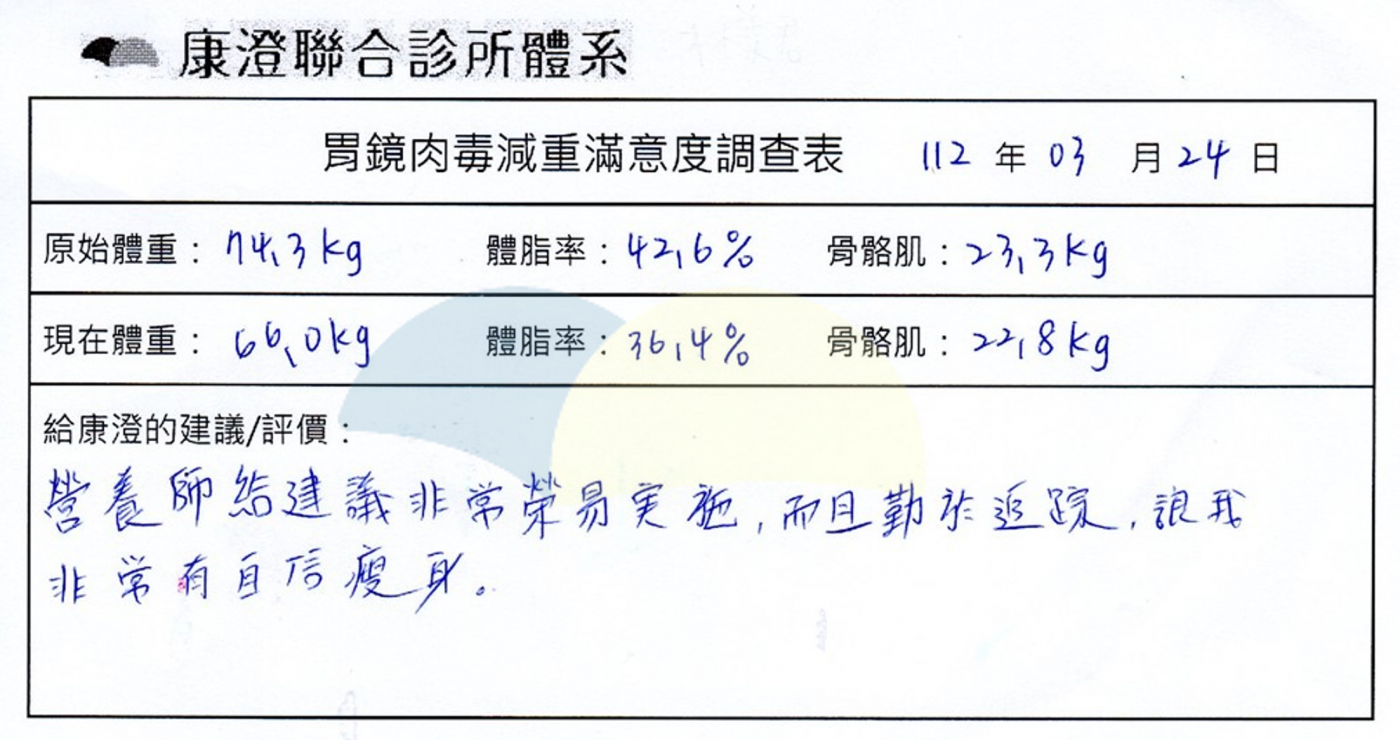 康澄聯合診所體系
胃鏡肉毒減重滿意度調查表 112 年 03 月 24 日
原始體重： 74.3kg 體脂率：42.6% 骨骼肌：23.3kg
現在體重： 66.0kg 體脂率：36.4% 骨骼肌：22.8kg
給康澄的建議/評價：
營養師給建議非常榮易実施，而且勤於追踪，讓我
非常有自信瘦身。